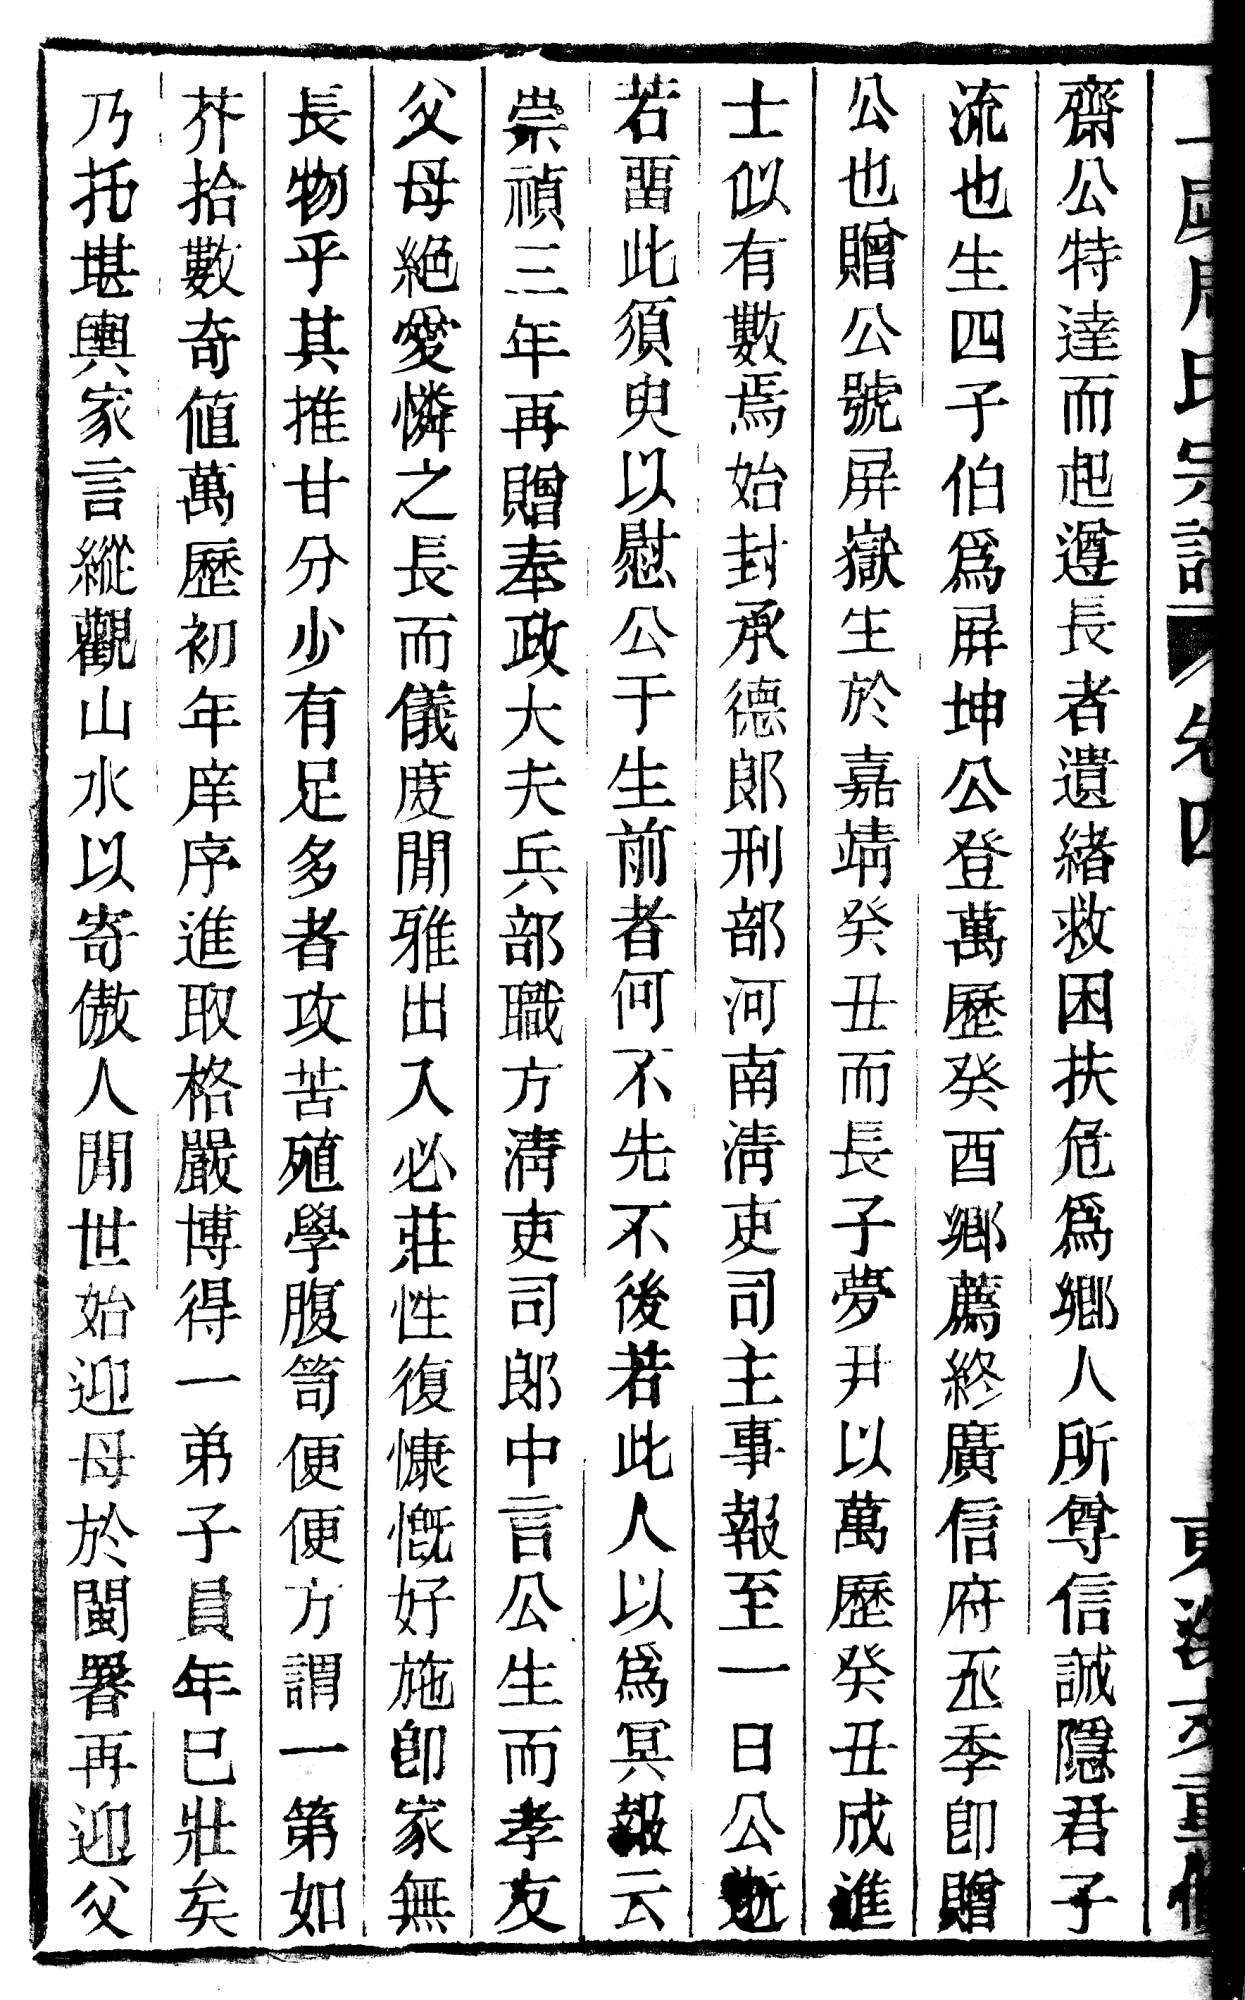 氏宗譜 卷四
齋公特達而起遵長者遺緒救困扶危爲鄉人所尊信誠隱君子
流也生四子伯爲屏坤公登萬歷癸酉鄉薦終廣信府丞季卽贈
公也贈公號屏嶽生於嘉靖癸丑而長子夢尹以萬歷癸丑成進
士似有數焉始封承德郎刑部河南清吏司主事報至一日公逝
若畱此須臾以慰公于生前者何不先不後若此人以爲冥報云
崇禎三年再贈奉政大夫兵部職方清吏司郎中言公生而孝友
父母絕愛憐之長而儀度閒雅出入必莊性復慷慨好施卽家無
長物乎其推甘分少有足多者攻苦殖學腹笥便便方謂一第如
芥拾數奇値萬歷初年庠序進取格嚴博得一弟子員年已壯矣
乃托堪輿家言縱觀山水以寄傲人閒世始迎母於閩署再迎父